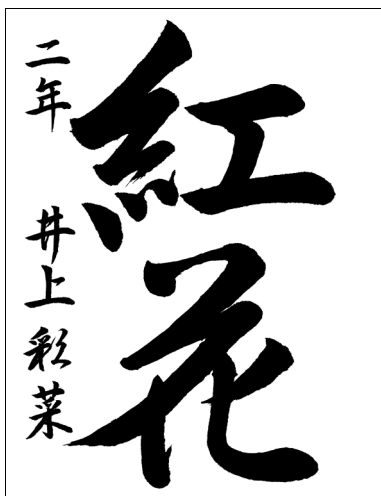 紅花
二年 井上彩菜